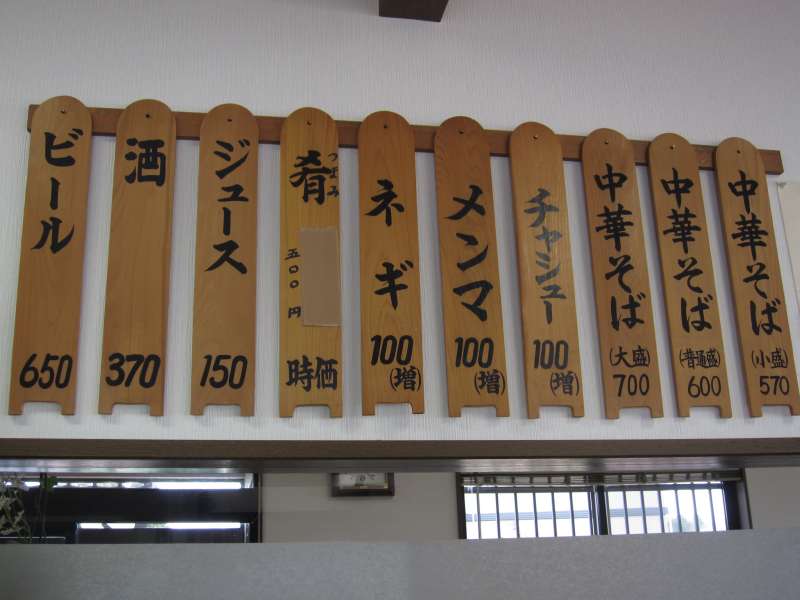 中華そば
(小盛)
570
中華そば
(普通盛)
600
中華そば
(大盛)
700
チャシュー
100
(増)
メンマ
100
(増)
ネギ
100
(増)
肴
つまみ
五〇〇円
時価
ジュース
150
酒
370
ビール
650